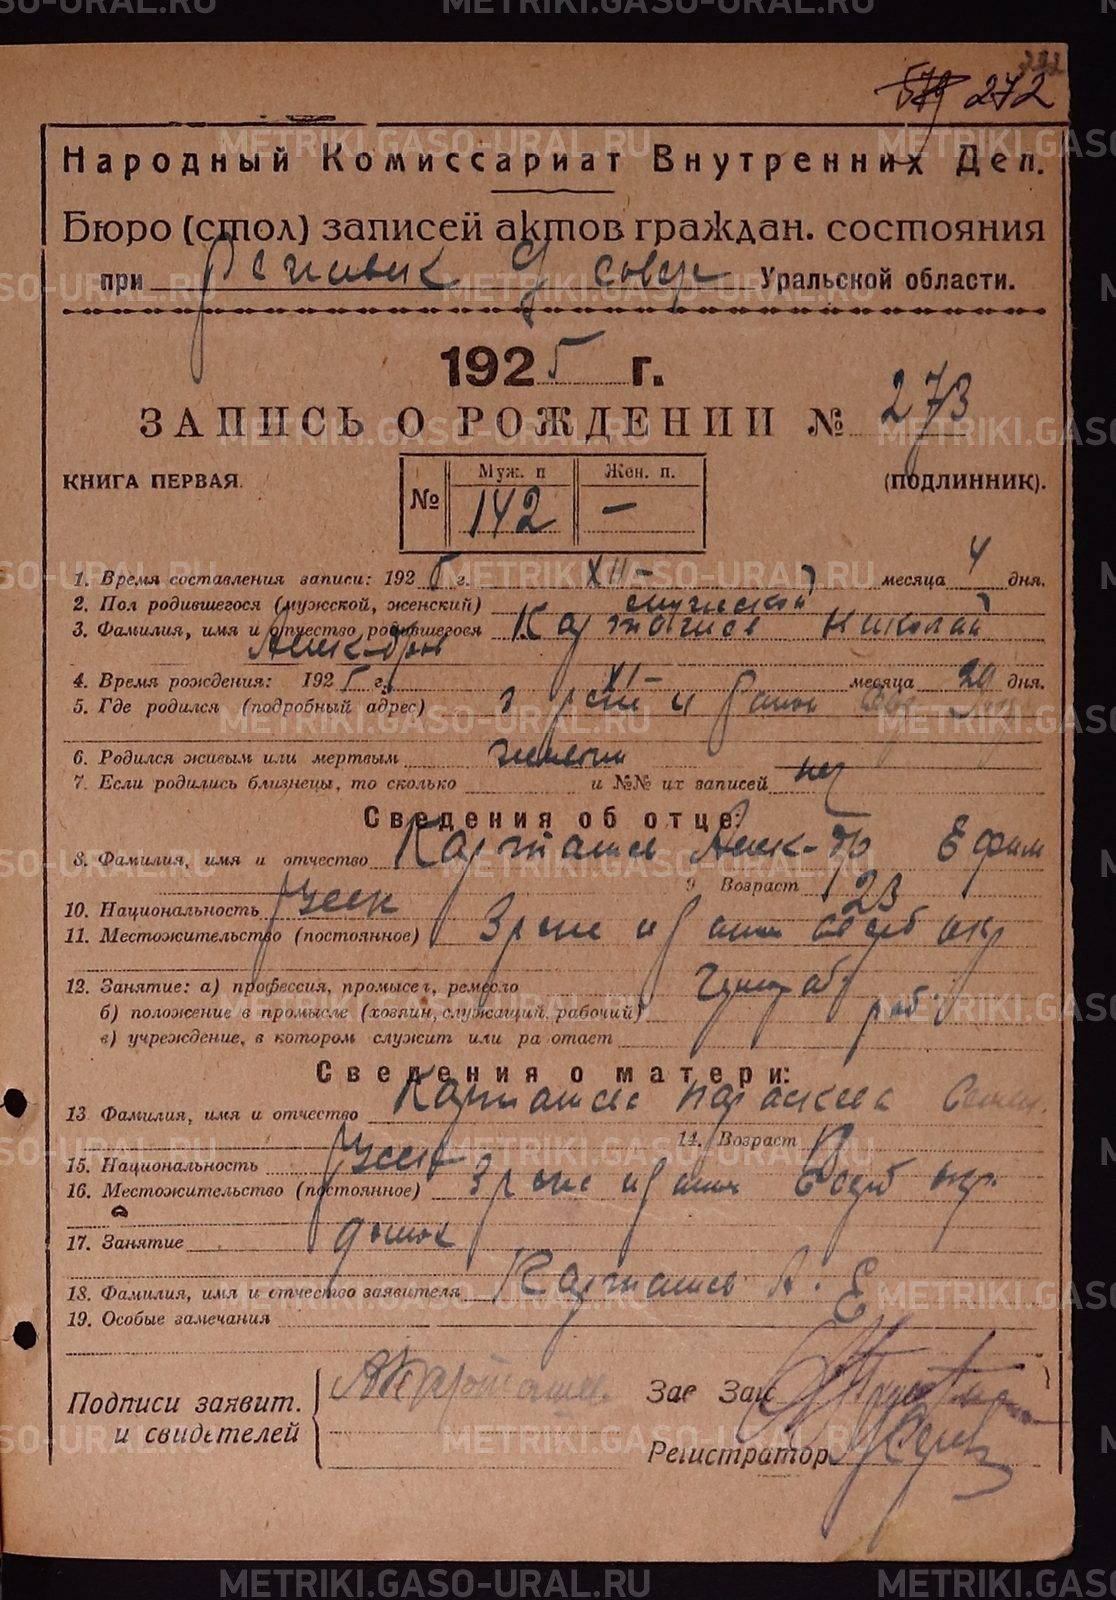 272
579 272
Народный Комиссариат Внутренних Дел.
Бюро (стол) записей актов граждан. состояния
при Уральской области.
1925 г.
ЗАПИСЬ О РОЖДЕНИИ № 273
КНИГА ПЕРВАЯ. (ПОДЛИННИК).
№ Муж. п 142 Жен. п. —
1. Время составления записи: 1925 г. XII – месяца 4 дня.
2. Пол родившегося (мужской, женский) мужской
3. Фамилия, имя и отчество родившегося Карташев Николай
Алек-дров
4. Время рождения: 1925 г. XI – месяца 29 дня.
5. Где родился (подробный адрес)
6. Родился живым или мертвым живым
7. Если родились близнецы, то сколько и №№ их записей нет
Сведения об отце:
8. Фамилия, имя и отчество Карташев Алек-др Ефим
9 Возраст 23
10. Национальность Русск
11. Местожительство (постоянное)
12. Занятие: а) профессия, промысел, ремесло
б) положение в промысле (хозяин, служащий, рабочий) раб.
в) учреждение, в котором служит или ра отает
Сведения о матери:
13 Фамилия, имя и отчество Карташева Парасков Семен.
14. Возраст
15. Национальность Русск
16. Местожительство (постоянное)
17. Занятие домох
18. Фамилия, имя и отчество заявителя Карташев А. Е
19. Особые замечания
Подписи заявит. АКарташев Зав Заг
и свидетелей Регистратор
METRIKI.GASO-URAL.RU